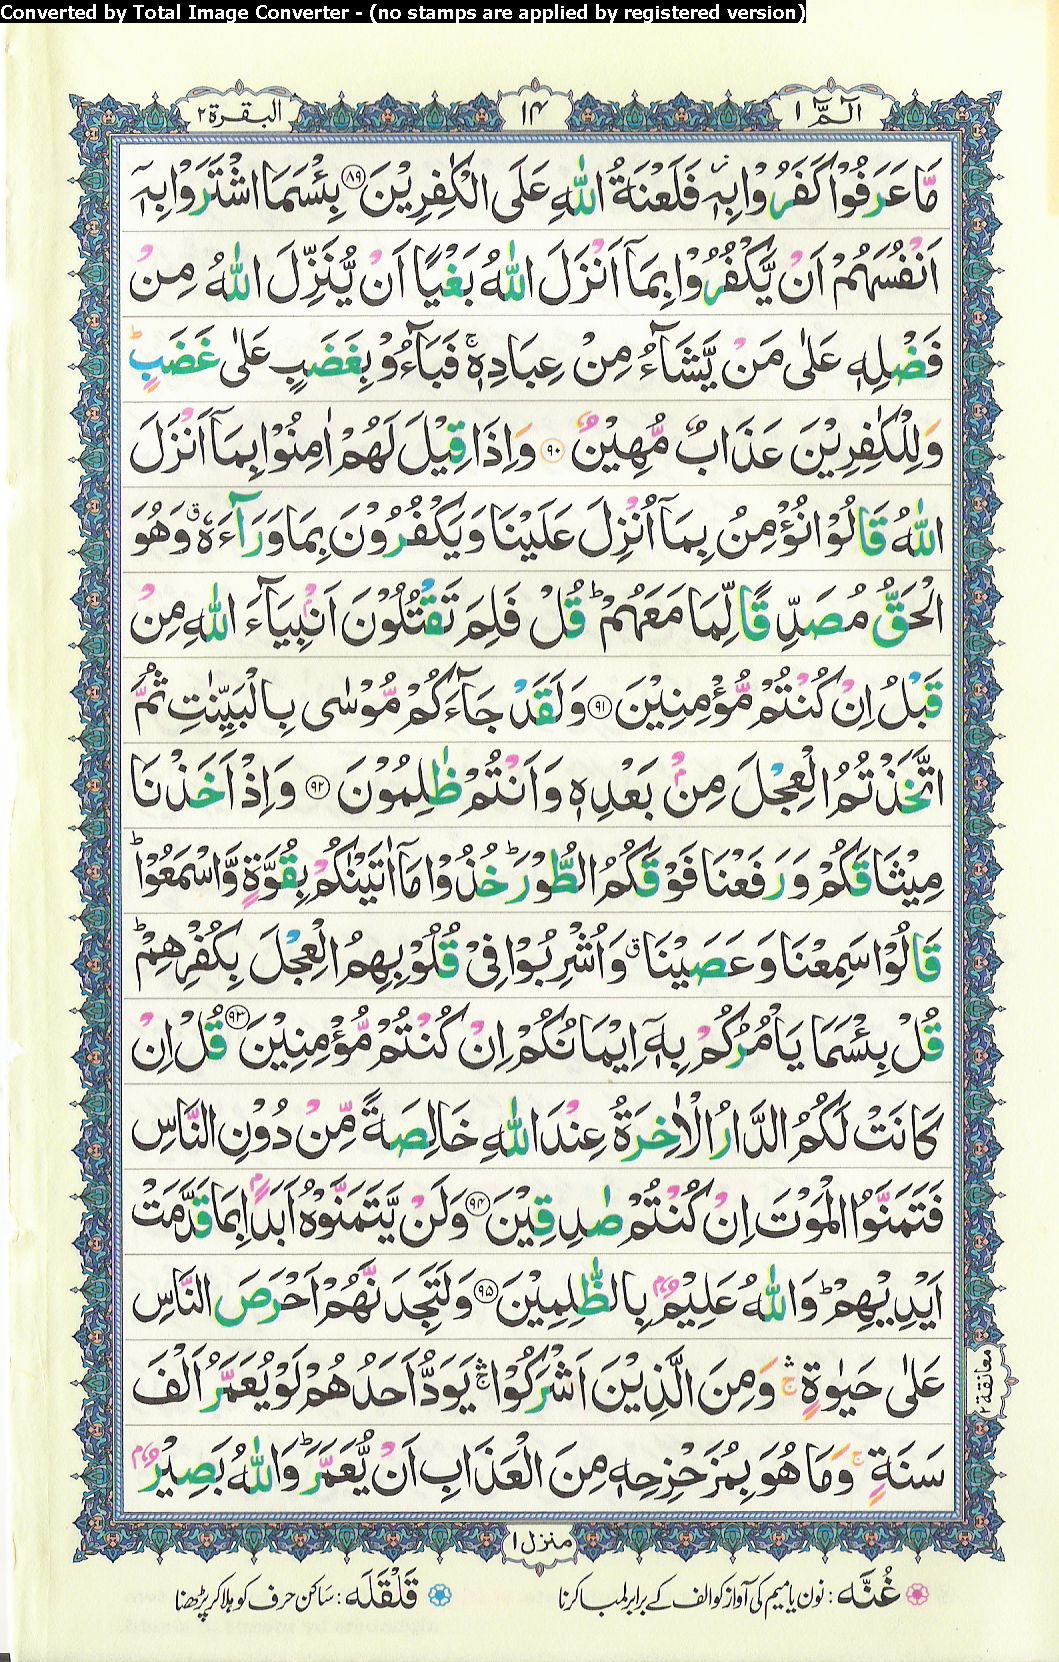 Converted by Total Image Converter - (no stamps are applied by registered version)
الٓمّٓ ۱
۱۴
البقرة ۲
مَّا عَرَفُوْا كَفَرُوْا بِهٖ٘ فَلَعْنَةُ اللّٰهِ عَلَى الْكٰفِرِیْنَ ﴿۸۹﴾ بِئْسَمَا اشْتَرَوْا بِهٖۤ
اَنْفُسَهُمْ اَنْ یَّكْفُرُوْا بِمَاۤ اَنْزَلَ اللّٰهُ بَغْیًا اَنْ یُّنَزِّلَ اللّٰهُ مِنْ
فَضْلِهٖ عَلٰى مَنْ یَّشَآءُ مِنْ عِبَادِهٖ ۚ فَبَآءُوْ بِغَضَبٍ عَلٰى غَضَبٍ ؕ
وَلِلْكٰفِرِیْنَ عَذَابٌ مُّهِیْنٌ ﴿۹۰﴾ وَاِذَا قِیْلَ لَهُمْ اٰمِنُوْا بِمَاۤ اَنْزَلَ
اللّٰهُ قَالُوْا نُؤْمِنُ بِمَاۤ اُنْزِلَ عَلَیْنَا وَیَكْفُرُوْنَ بِمَا وَرَآءَهٗ ۗ وَهُوَ
الْحَقُّ مُصَدِّقًا لِّمَا مَعَهُمْ ؕ قُلْ فَلِمَ تَقْتُلُوْنَ اَنْۢبِیَآءَ اللّٰهِ مِنْ
قَبْلُ اِنْ كُنْتُمْ مُّؤْمِنِیْنَ ﴿۹۱﴾ وَلَقَدْ جَآءَكُمْ مُّوْسٰى بِالْبَیِّنٰتِ ثُمَّ
اتَّخَذْتُمُ الْعِجْلَ مِنْۢ بَعْدِهٖ وَاَنْتُمْ ظٰلِمُوْنَ ﴿۹۲﴾ وَاِذْ اَخَذْنَا
مِیْثَاقَكُمْ وَرَفَعْنَا فَوْقَكُمُ الطُّوْرَ ؕ خُذُوْا مَاۤ اٰتَیْنٰكُمْ بِقُوَّةٍ وَّاسْمَعُوْا ؕ
قَالُوْا سَمِعْنَا وَعَصَیْنَا ۗ وَاُشْرِبُوْا فِیْ قُلُوْبِهِمُ الْعِجْلَ بِكُفْرِهِمْ ؕ
قُلْ بِئْسَمَا یَاْمُرُكُمْ بِهٖۤ اِیْمَانُكُمْ اِنْ كُنْتُمْ مُّؤْمِنِیْنَ ﴿۹۳﴾ قُلْ اِنْ
كَانَتْ لَكُمُ الدَّارُ الْاٰخِرَةُ عِنْدَ اللّٰهِ خَالِصَةً مِّنْ دُوْنِ النَّاسِ
فَتَمَنَّوُا الْمَوْتَ اِنْ كُنْتُمْ صٰدِقِیْنَ ﴿۹۴﴾ وَلَنْ یَّتَمَنَّوْهُ اَبَدًۢا بِمَا قَدَّمَتْ
اَیْدِیْهِمْ ؕ وَاللّٰهُ عَلِیْمٌۢ بِالظّٰلِمِیْنَ ﴿۹۵﴾ وَلَتَجِدَنَّهُمْ اَحْرَصَ النَّاسِ
عَلٰى حَیٰوةٍ ۛۚ وَمِنَ الَّذِیْنَ اَشْرَكُوْا ۛۚ یَوَدُّ اَحَدُهُمْ لَوْ یُعَمَّرُ اَلْفَ
سَنَةٍ ۚ وَمَا هُوَ بِمُزَحْزِحِهٖ مِنَ الْعَذَابِ اَنْ یُّعَمَّرَ ؕ وَاللّٰهُ بَصِیْرٌۢ
معانقة ۲
منزل ۱
غُنَّه : نون یا میم کی آواز کو الف کے برابر لمبا کرنا
قَلْقَلَه : ساکن حرف کو ہلا کر پڑھنا